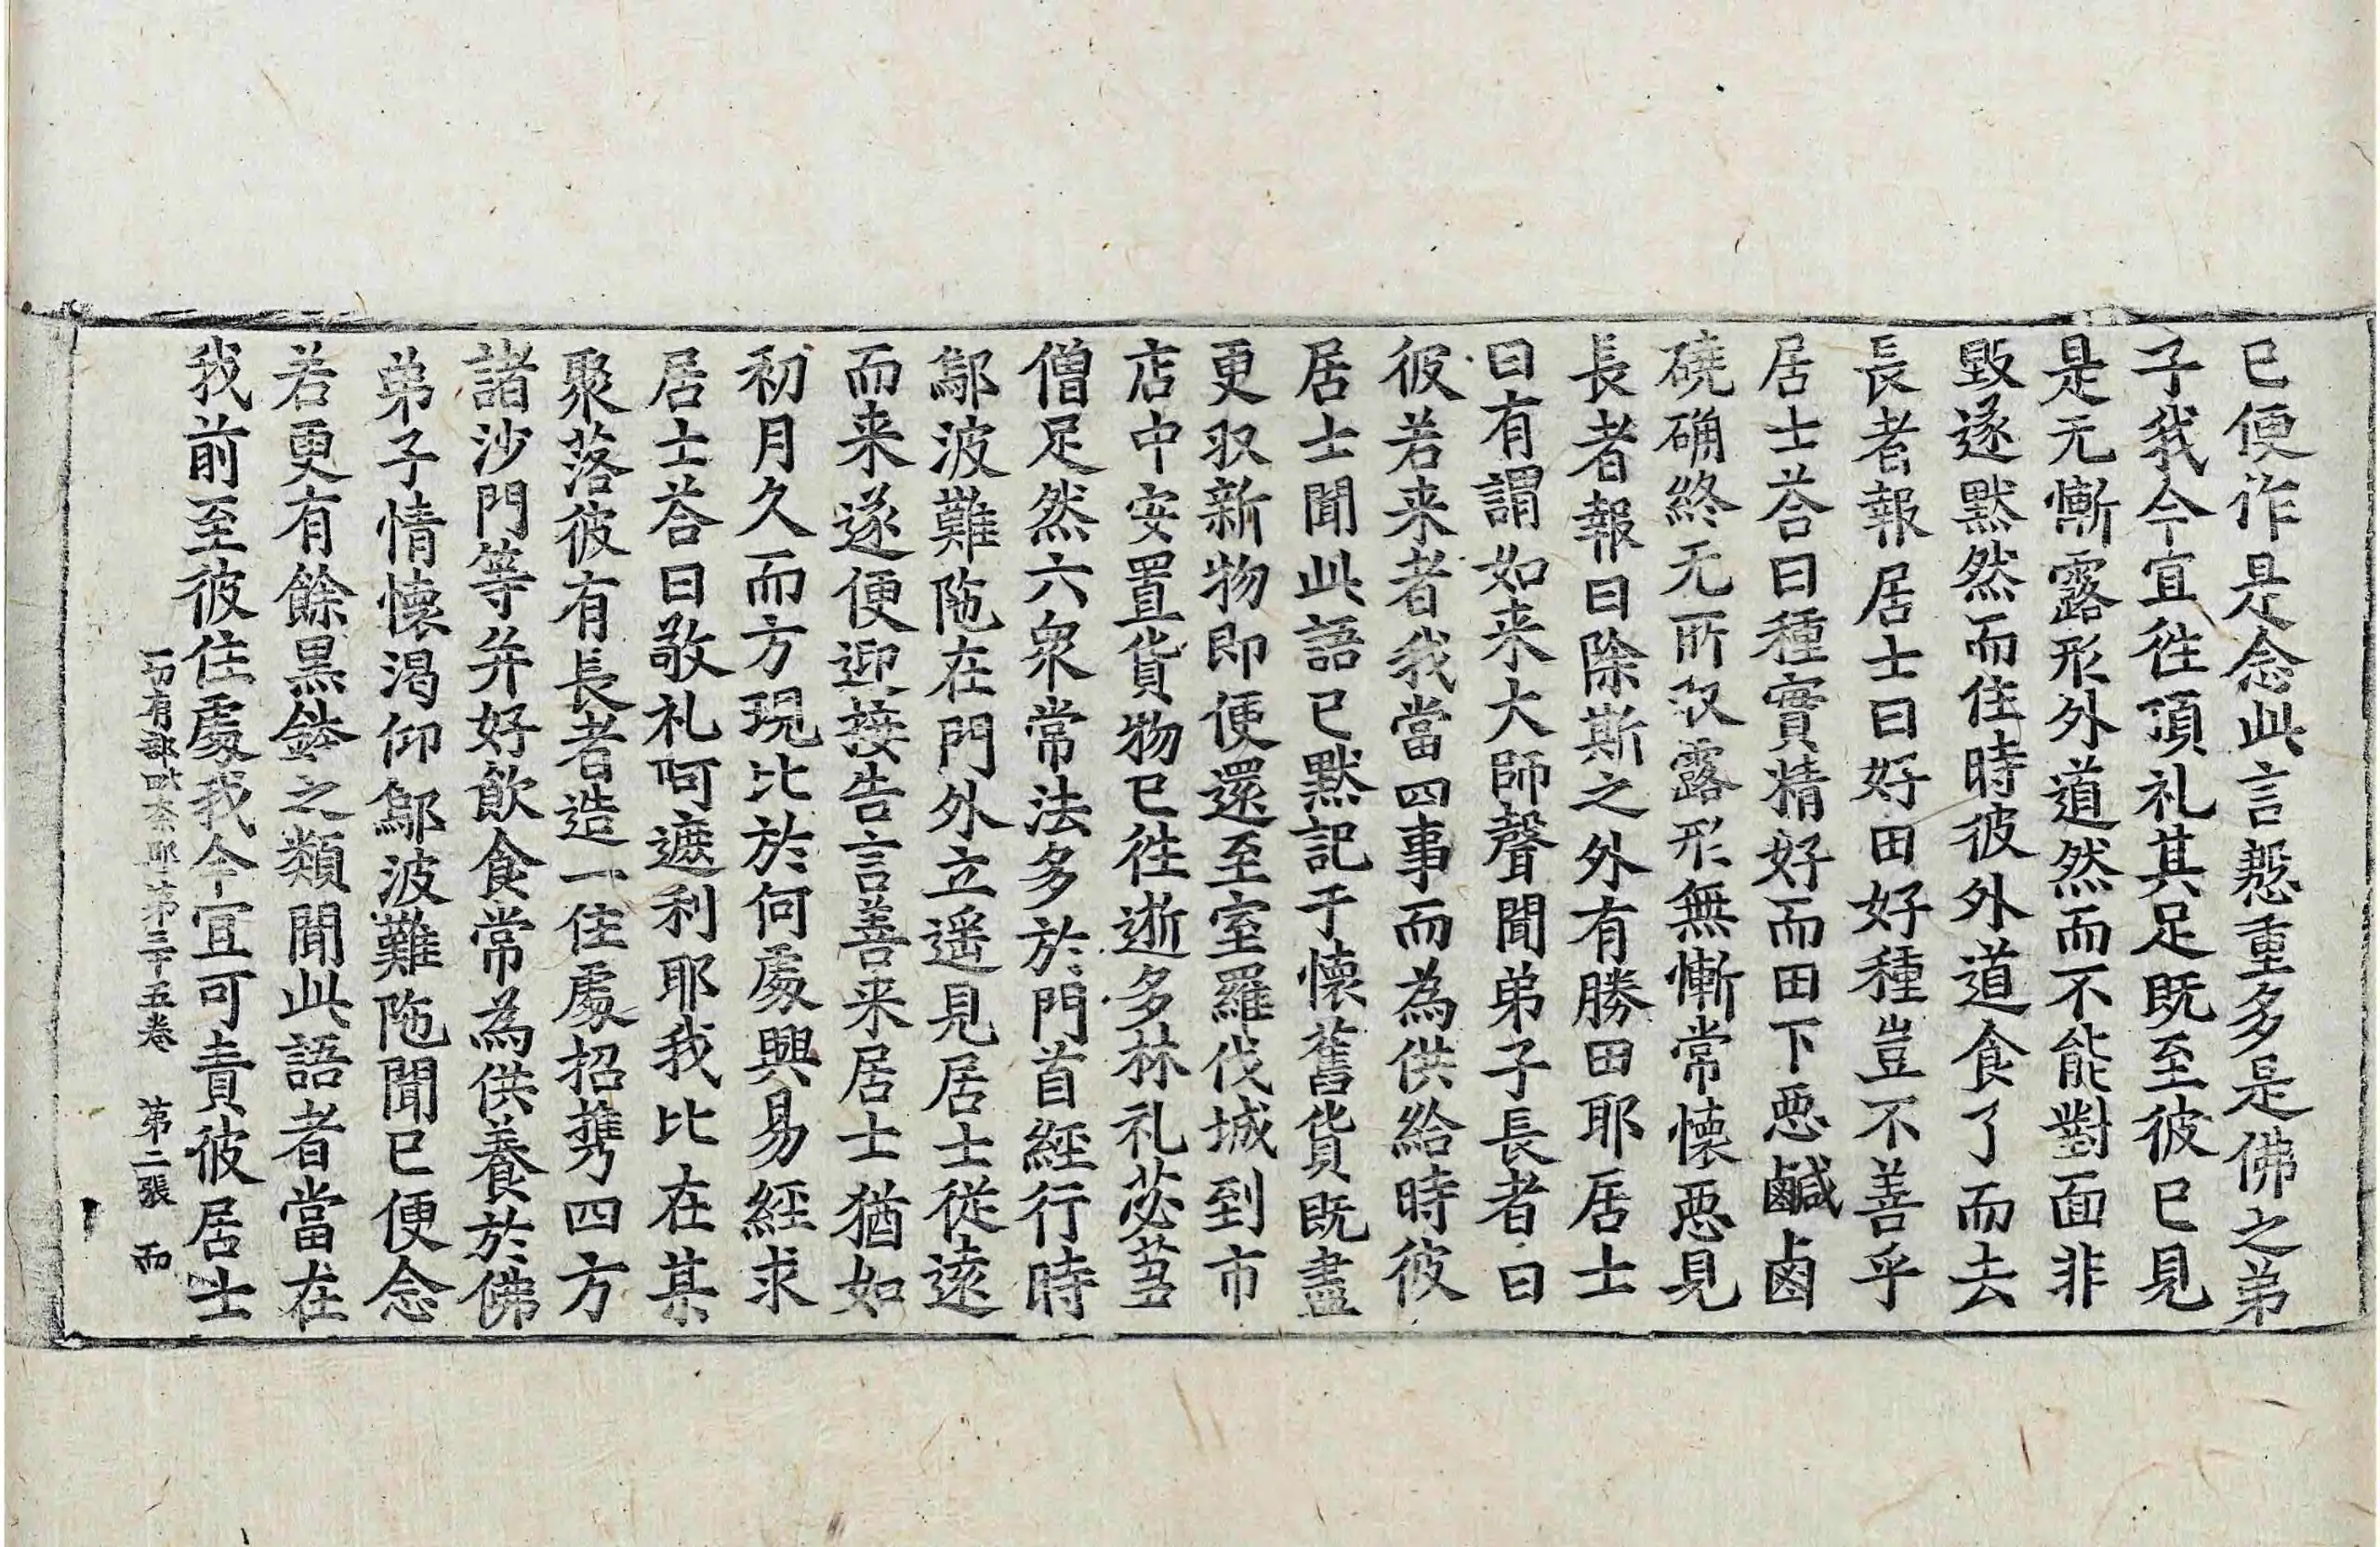 已便作是念此言慇重多是佛之弟
子我今宜徃頂礼其足既至彼已見
是无慚露形外道然而不能對面非
毀遂默然而住時彼外道食了而去
長者報居士曰好田好種豈不善乎
居士荅曰種實精好而田下惡鹹鹵
磽确終无所収露形無慚常懷惡見
長者報曰除斯之外有勝田耶居士
曰有謂如来大師聲聞弟子長者曰
彼若来者我當四事而為供給時彼
居士聞此語已默記于懷舊貨既盡
更収新物即便還至室羅伐城到市
店中安置貨物已徃逝多林礼苾芻
僧足然六衆常法多於門首經行時
鄔波難陁在門外立遥見居士從遠
而来遂便迎接告言善来居士猶如
初月久而方現比於何處興易經求
居士荅曰敬礼呵遮利耶我比在某
聚落彼有長者造一住處招携四方
諸沙門等并好飲食常為供養於佛
弟子情懷渴仰鄔波難陁聞已便念
若更有餘黑鉢之類聞此語者當在
我前至彼住處我今宜可責彼居士
一切有部毗柰耶第三十五卷　第二張　而